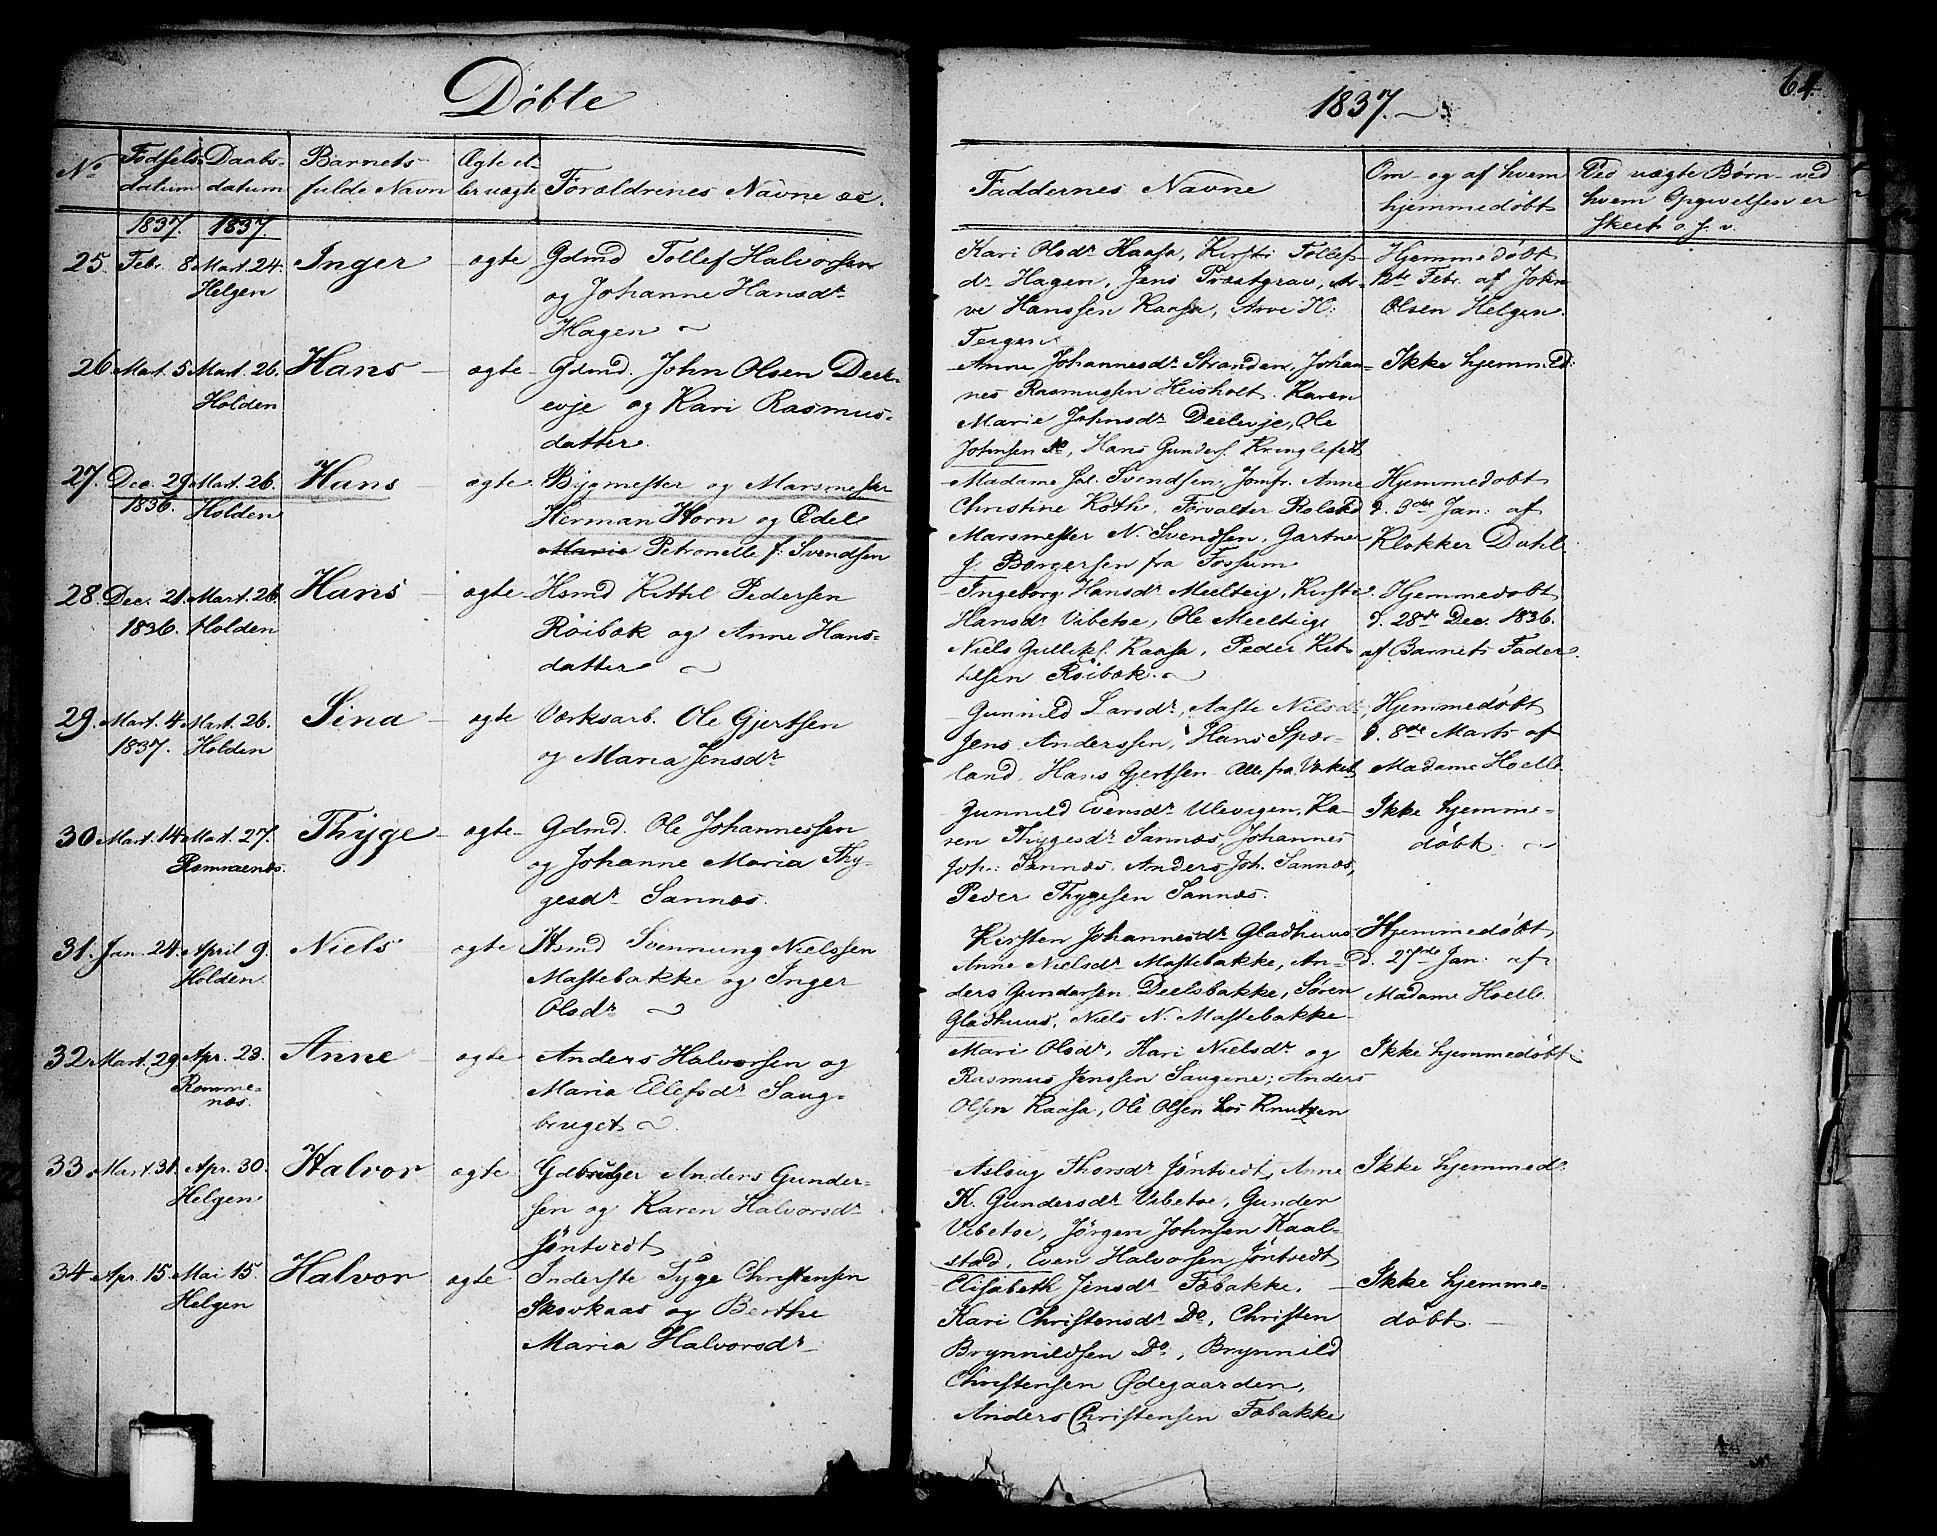 Döbte
1837.
64
No
Fødsels-
datum
Daabs-
datum
Barnets
fulde Navn
Ægte el-
ler uægte
Forældrenes Navne &c.
Faddernes Navne
Om- og af hvem
hjemmedøbt
Ved uægte Børn - ved
hvem Opgivelsen er
skeet o. s. v.
1837. 1837
25. Febr. 8. Mart. 24.
Helgen
Inger
ægte
Gdmd Tollef Halvorssen
og Johanne Hansdr
Hagen
Kari Olsdr Kaasa, Kirsti Tollefs-
dr Hagen, Jens Præstgrav, Ar-
ve Hanssen Kaasa, Arve H:
Teigen
Hjemmedøbt
12te Febr. af John
Olsen Helgen.
26 Mart. 5 Mart. 26.
Holden
Hans
ægte
Gdmd. John Olsen Deel-
evje og Kari Rasmus-
datter.
Anne Johannesdr Stranden, Johan-
nes Rasmussen Heisholt. Karen
Marie Johnsdr Deelevje, Ole
Johnsen do, Hans Gunders. Kringlefedt
Ikke hjemmed:
27. Dec. 29 Mart. 26.
1836. Holden
Hans
ægte
Bygmester og Marsmester
Herman Horn og Edel
Marie Petronelle f: Svendsen
Madame Svendsen, Jomfr. Anne
Christine Koth, Forvalter Rolsted
Marsmester N. Svendsen, Gartner
J. Borgersen fra Fossum
Hjemmedøbt
d. 3die Jan: af
Klokker Dahl
28. Dec. 21. Mart. 26.
1836. Holden
Hans
ægte
Hsmd Kittil Pedersen
Röibæk og Anne Hans-
datter
Ingeborg Hansdr Meelteig, Kirstie
Hansdr Vibetoe, Ole Meelteig
Niels Gulliks. Kaasa, Peder Kit-
tilsen Röibæk.
Hjemmedøbt
d. 28de Dec. 1836.
af Barnets Fader.
29. Mart. 4 Mart. 26.
1837. Holden
Sina
ægte
Værksarb. Ole Gjertsen
og Maria Jensdr
Gunnild Larsdr, Aaste Nielsdr,
Jens Anderssen, Hans Spær-
land, Hans Gjertsen Alle fra Værket
Hjemmedøbt
d. 8de Marts af
Madame Hoelle
30 Mart. 14 Mart. 27.
Romnaenæs.
Thyge
ægte
Gdmd. Ole Johannessen
og Johanne Maria Thy-
gesdr Sannæs.
Gunnild Evensdr Ulevigen, Ka-
ren Thygesdr Sannæs, Johannes
Joh: Sannæs, Anders Joh. Sannæs,
Peder Thygesen Sannæs.
Ikke hjemme-
døbt.
31. Jan. 24. April 9.
Holden.
Niels
ægte
Hsmd Svennung Nielssen
Mastebakke og Inger
Olsdr
Kirsten Johannesdr Gladhuus
Anne Nielsdr Mastebakke, An-
ders Gundersen Deelsbakke, Søren
Gladhuus, Niels N. Mastebakke
Hjemmedøbt
d. 27de Jan: af
Madame Hoelle.
32 Mart. 29 Apr. 23.
Romme-
næs.
Anne
ægte
Anders Halvorssen og
Maria Ellefsdr Saug-
bruget
Mari Olsdr, Kari Nielsdr og
Rasmus Jenssen Saugene; Anders
Olsen Kaasa, Ole Olsen hos Knutzen
Ikke hjemmedøbt
33. Mart. 31. Apr. 30.
Helgen
Halvor
ægte
Gdbruger Anders Gunder-
sen og Karen Halvorsdr
Jöntvedt
Asloug Thorsdr Jöntvedt, Anne
K. Gundersdr Vibetoe, Gunder
Vibetoe, Jørgen Johnsen Kaal-
stad, Even Halvorsen Jöntvedt
Ikke hjemmed.
34 Apr. 15 Mai 15.
Helgen
Halvor
ægte
Inderste Syge Christensen
Skovkaas og Berthe
Maria Halvorsdr
Elisabeth Jensdr Fæbakke.
Kari Christensdr Do, Christen
Brynnildsen Do, Brynnild
Christensen Ødegaarden,
Anders Christensen Fæbakke
Ikke hjemme-
døbt.